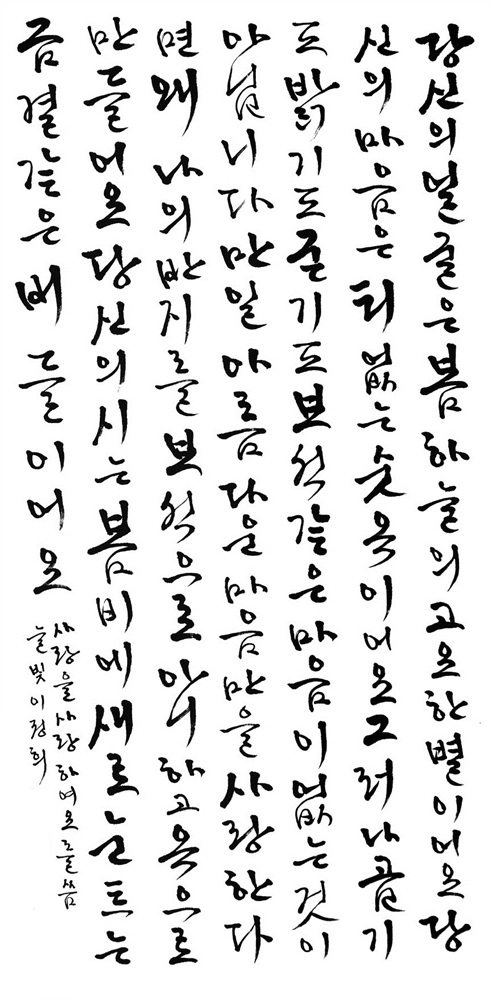 당신의얼굴은봄하늘의고요한별이어요당
신의마음은티없는숫옥이어요그러나곱기
도밝기도굳기도보석같은마음이없는것이
아닙니다만일아름다운마음만을사랑한다
면왜나의반지를보석으로아니하고옥으로
만들어요당신의시는봄비에새로눈트는
금결같은버들이어요
사랑을사랑하여요를씀
늘빛이정희